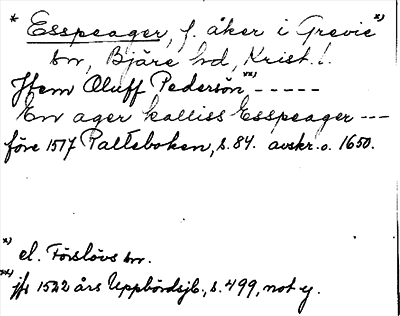 * Esspeager, f. åker i Grevie x)
sn, Bjäre hd, Krist. l.
Jtem Oluff Pedersøn xx), -----
En ager kalliss Esspeager ---
före 1517 Palteboken, s. 84. avskr. o. 1650.
x) el. Förslövs sn.
xx) jfr 1522 års Uppbördsjb., s. 499, not y.